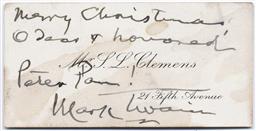 Merry Christmas
O dear & honored
Mr. S. L. Clemens
Peter Pan!
Mark Twain
21 Fifth Avenue